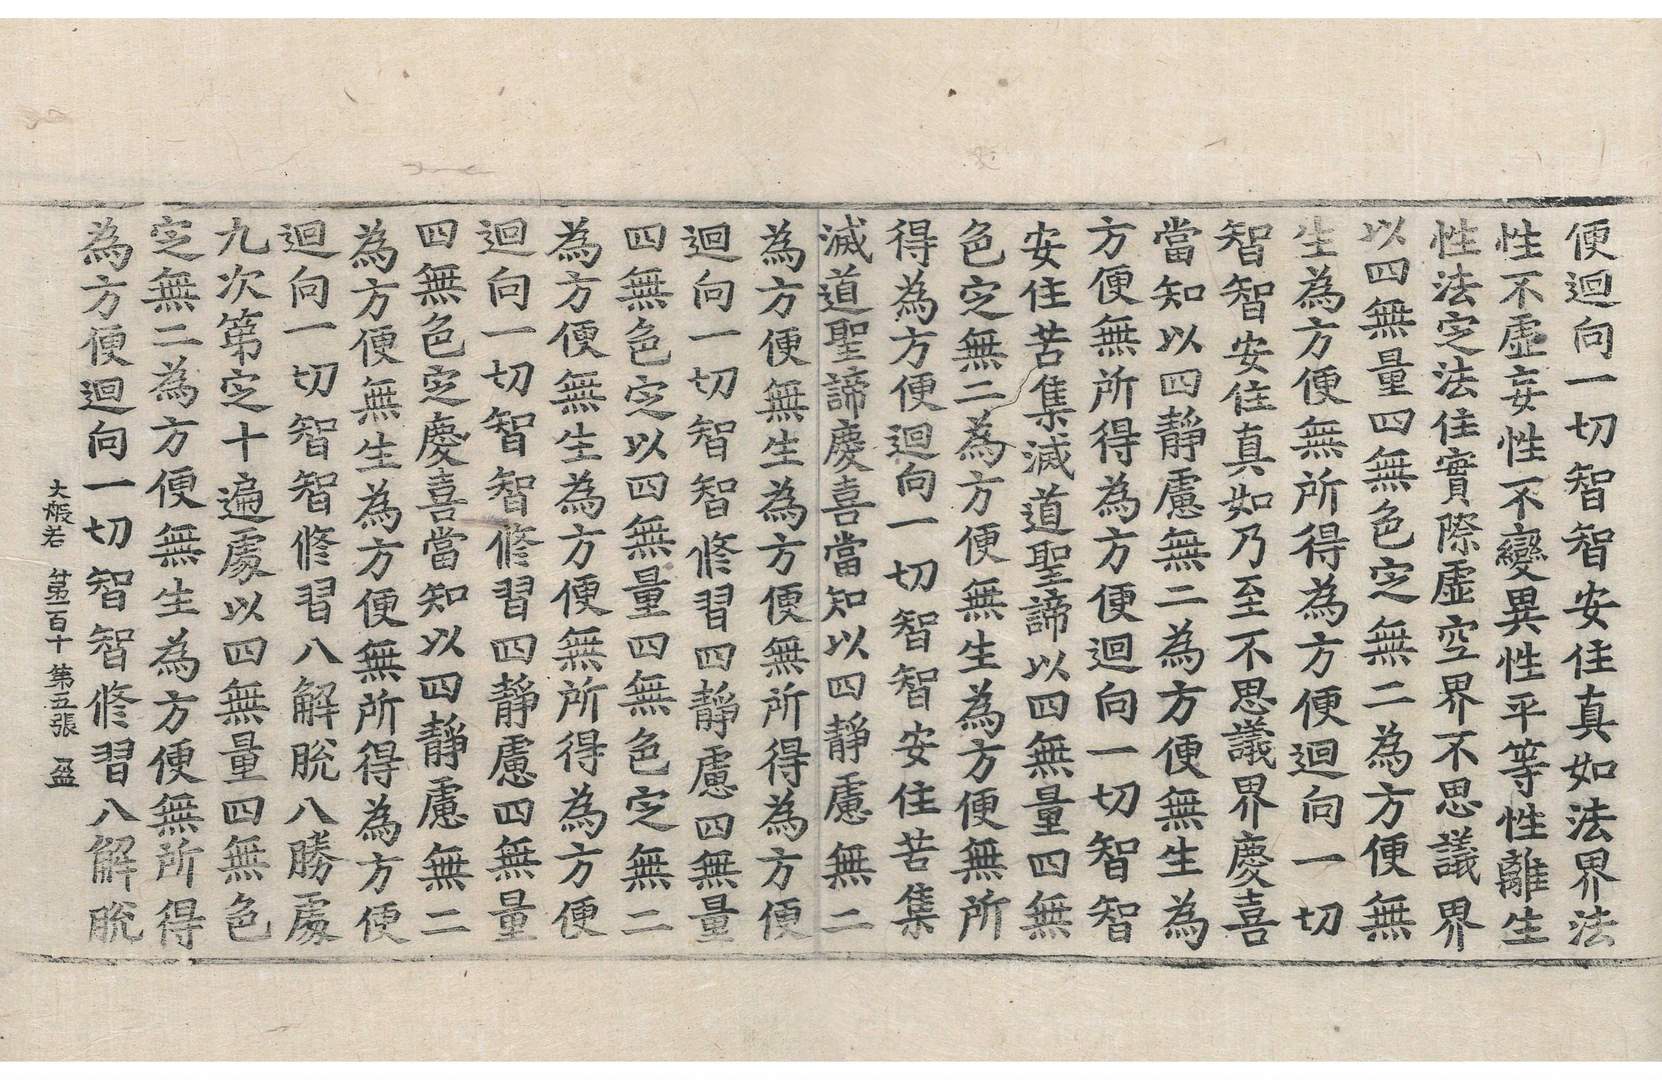 便迴向一切智智安住真如法界法
性不虛妄性不變異性平等性離生
性法定法住實際虛空界不思議界
以四無量四無色定無二為方便無
生為方便無所得為方便迴向一切
智智安住真如乃至不思議界慶喜
當知以四靜慮無二為方便無生為
方便無所得為方便迴向一切智智
安住苦集滅道聖諦以四無量四無
色定無二為方便無生為方便無所
得為方便迴向一切智智安住苦集
滅道聖諦慶喜當知以四靜慮無二
為方便無生為方便無所得為方便
迴向一切智智修習四靜慮四無量
四無色定以四無量四無色定無二
為方便無生為方便無所得為方便
迴向一切智智修習四靜慮四無量
四無色定慶喜當知以四靜慮無二
為方便無生為方便無所得為方便
迴向一切智智修習八解脫八勝處
九次第定十遍處以四無量四無色
定無二為方便無生為方便無所得
為方便迴向一切智智修習八解脫
大般若 第一百十 第五張 盈